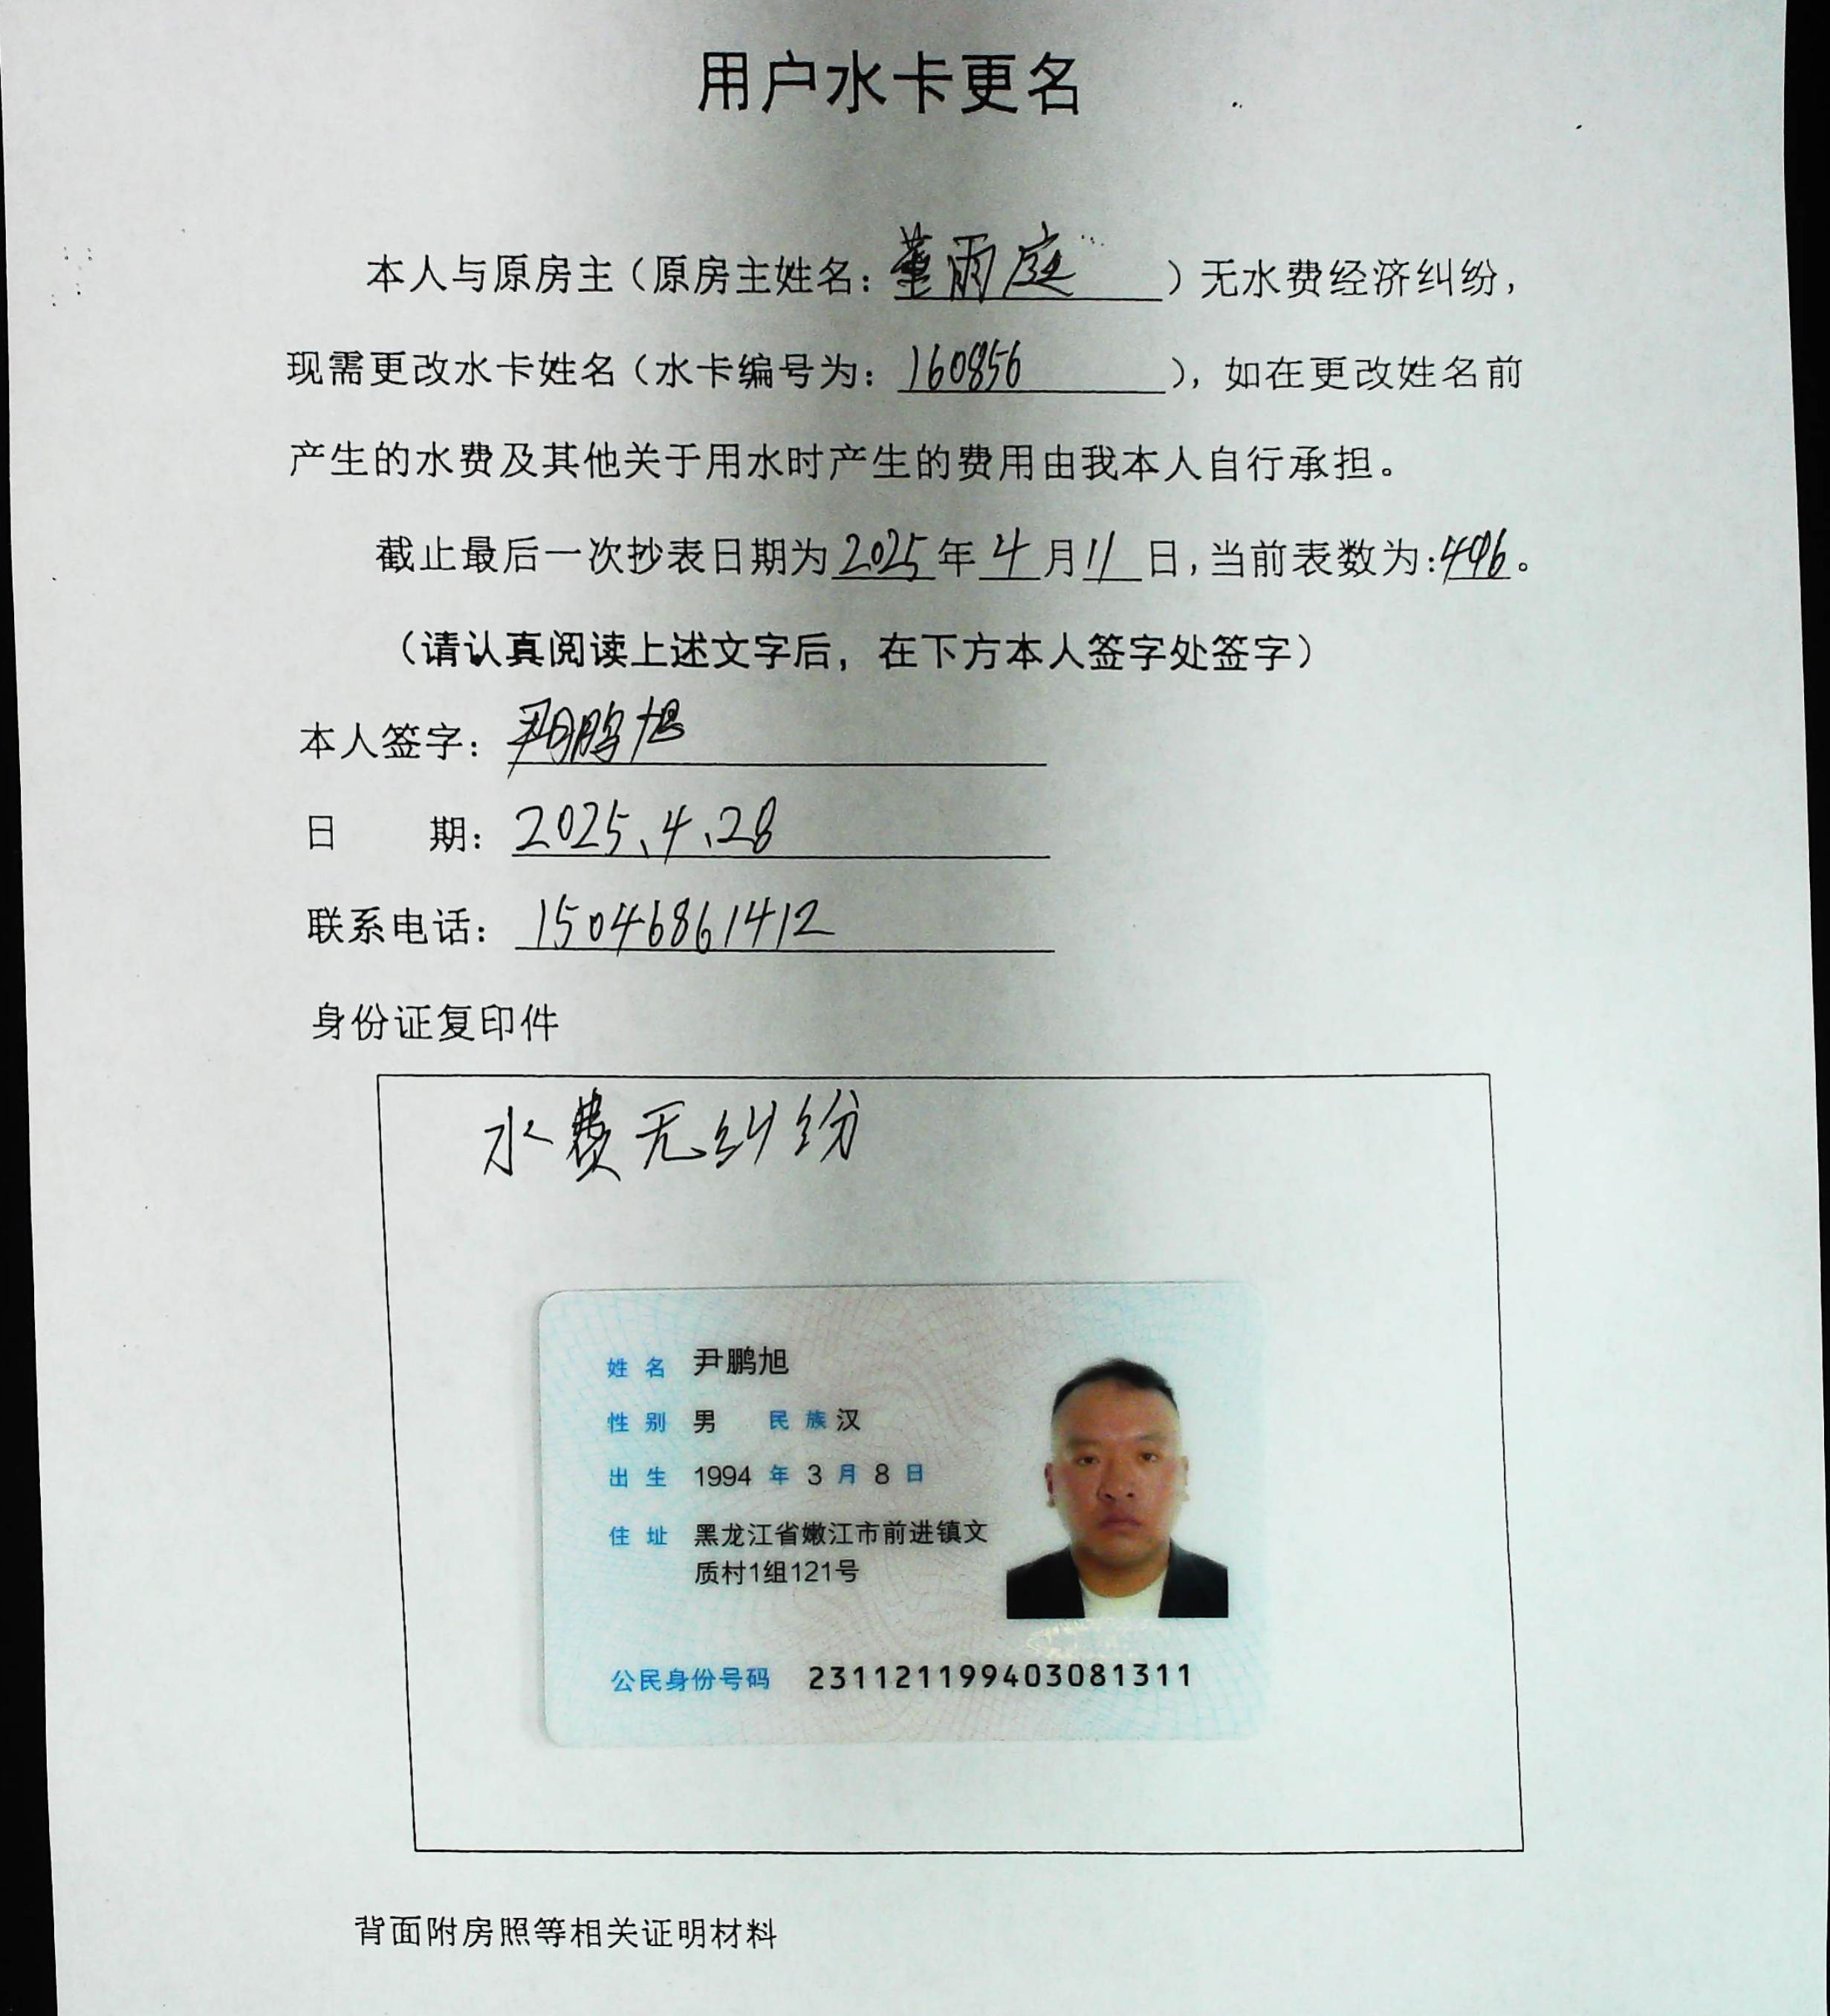 用户水卡更名
本人与原房主（原房主姓名：董雨庭）无水费经济纠纷，
现需更改水卡姓名（水卡编号为：160856），如在更改姓名前
产生的水费及其他关于用水时产生的费用由我本人自行承担。
截止最后一次抄表日期为2025年4月11日，当前表数为:496。
（请认真阅读上述文字后，在下方本人签字处签字）
本人签字：尹鹏旭
日 期：2025、4、28
联系电话：15046861412
身份证复印件
水费无纠纷
姓名 尹鹏旭
性别 男 民族 汉
出生 1994 年 3 月 8 日
住址 黑龙江省嫩江市前进镇文
质村1组121号
公民身份号码 231121199403081311
背面附房照等相关证明材料